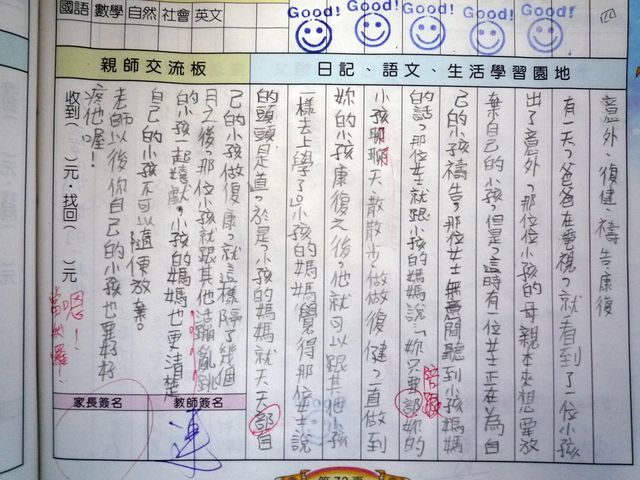 國語 數學 自然 社會 英文
Good! Good! Good! Good! Good!
四
親師交流板
日記、語文、生活學習園地
意外、復健、禱告、康復
有一天,爸爸在電視,就看到了一位小孩
出了意外,那位小孩的母親本來想要放
棄自己的小孩,但是,這時有一位女士正在為自
己的小孩禱告,那位女士無意間聽到小孩媽媽
的話,那位女士就跟小孩的媽媽說:「妳只要部妳的
陪
小孩聊聊天、散散步、做做復健,一直做到
妳的小孩康復之後,他就可以跟其他小孩
一樣去上學了。」小孩的媽媽覺得那位女士說
的頭頭是道,於是,小孩的媽媽就天天部自
己的小孩做復康,就這樣隔了幾個
月之後,那位小孩就跟其他活蹦亂跳
的小孩一起嬉戲。小孩的媽媽也更清楚
自己的小孩不可以隨便放棄。
老師以後你自己的小孩也要好好
疼他喔!
嗯!
當然囉!
收到( )元・找回( )元
家長簽名
教師簽名
第 72 頁